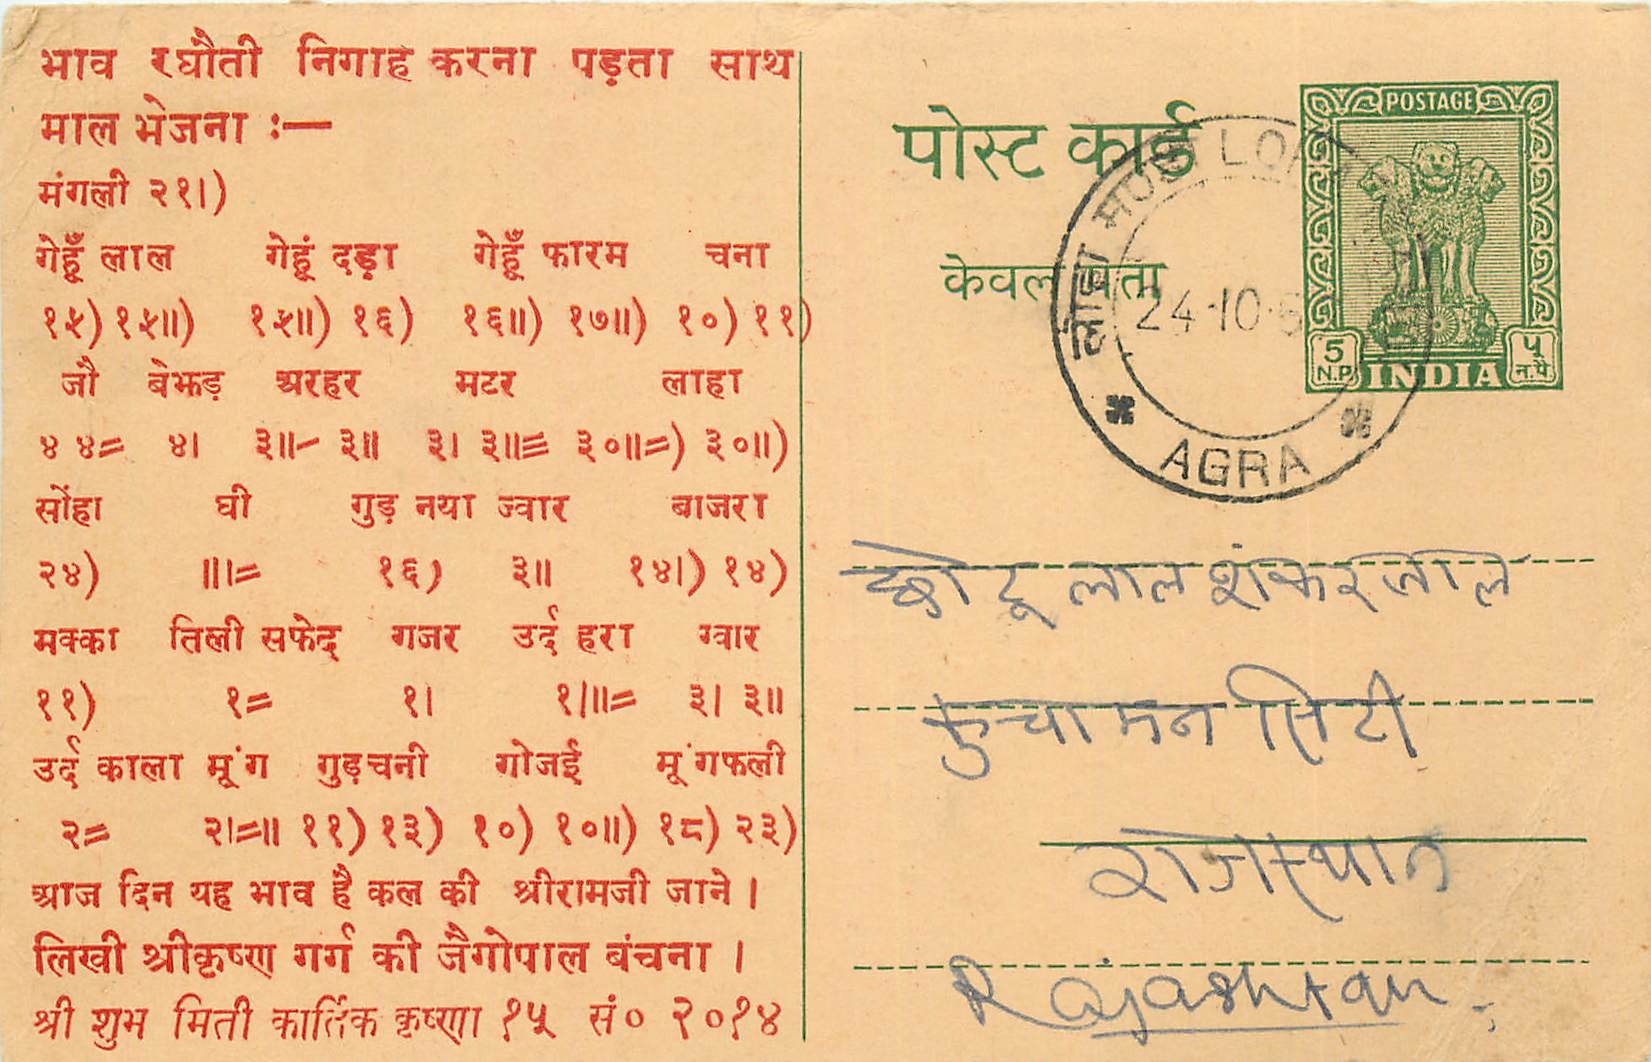 भाव रघौती निगाह करना पड़ता साथ
माल भेजना :—
मंगली २१।)
गेहूँ लाल गेहूं दड़ा गेहूँ फारम चना
१५) १५॥) १५॥) १६) १६॥) १७॥) १०) ११)
जौ बेझड़ अरहर मटर लाहा
४ ४= ४। ३॥- ३॥ ३। ३॥≡ ३०॥=) ३०॥)
सोंहा घी गुड़ नया ज्वार बाजरा
२४) ॥।= १६) ३॥ १४।) १४)
मक्का तिली सफेद गजर उर्द हरा ग्वार
११) १= १। १/॥= ३। ३॥
उर्द काला मूंग गुड़चनी गोजई मूंगफली
२= २।=॥ ११) १३) १०) १०॥) १८) २३)
आज दिन यह भाव है कल की श्रीरामजी जाने।
लिखी श्रीकृष्ण गर्ग की जैगोपाल बंचना।
श्री शुभ मिती कार्तिक कृष्णा १५ सं० २०१४
POSTAGE
पोस्ट कार्ड
केवल पता
5 N.P. INDIA ५ न.पै.
लोहा
24·10·5
AGRA
छोटू लाल शंकरलाल
कुचामन सिटी
राजस्थान
Rajashtan